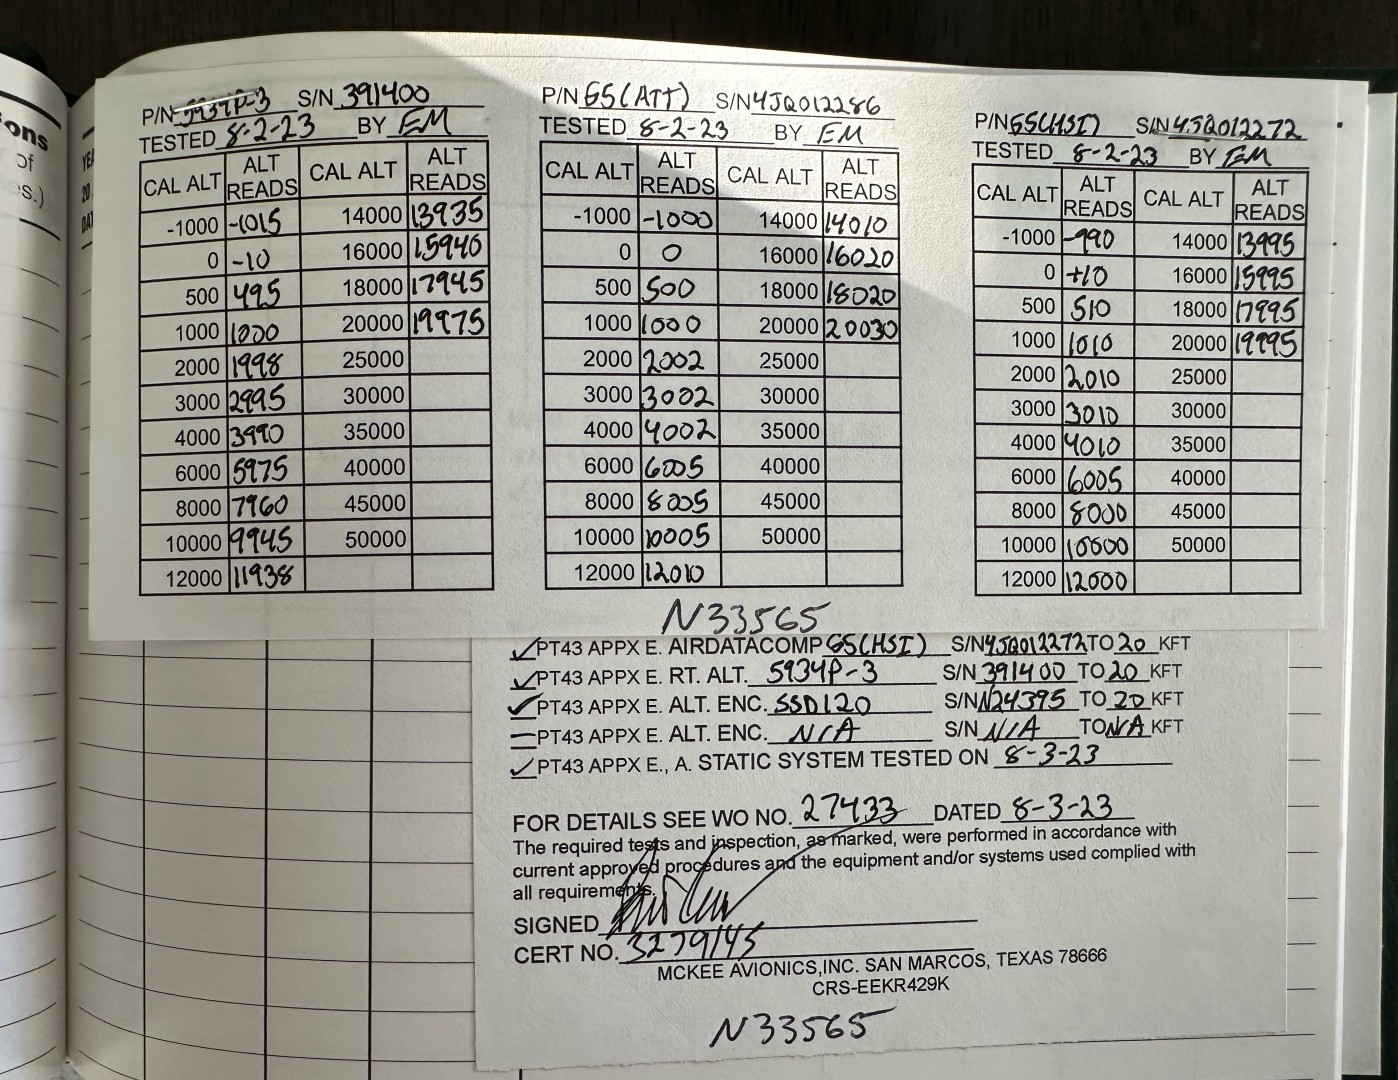 ons
of
es.)
YEA
20
DAT
P/N 5934P-3 S/N 391400
TESTED 8-2-23 BY EM
CAL ALT ALT READS CAL ALT ALT READS
-1000 -1015 14000 13935
0 -10 16000 15940
500 495 18000 17945
1000 1000 20000 19975
2000 1998 25000
3000 2995 30000
4000 3990 35000
6000 5975 40000
8000 7960 45000
10000 9945 50000
12000 11938
P/N G5(ATT) S/N 4JQ012286
TESTED 8-2-23 BY EM
CAL ALT ALT READS CAL ALT ALT READS
-1000 -1000 14000 14010
0 0 16000 16020
500 500 18000 18020
1000 1000 20000 20030
2000 2002 25000
3000 3002 30000
4000 4002 35000
6000 6005 40000
8000 8005 45000
10000 10005 50000
12000 12010
P/N G5(HSI) S/N 4JQ012272
TESTED 8-2-23 BY EM
CAL ALT ALT READS CAL ALT ALT READS
-1000 -990 14000 13995
0 +10 16000 15995
500 510 18000 17995
1000 1010 20000 19995
2000 2010 25000
3000 3010 30000
4000 4010 35000
6000 6005 40000
8000 8000 45000
10000 10000 50000
12000 12000
N33565
✓PT43 APPX E. AIRDATACOMP G5(HSI) S/N 4JQ012272 TO 20 KFT
✓PT43 APPX E. RT. ALT. 5934P-3 S/N 391400 TO 20 KFT
✓PT43 APPX E. ALT. ENC. SSD120 S/N N24395 TO 20 KFT
–PT43 APPX E. ALT. ENC. N/A S/N N/A TO N/A KFT
✓PT43 APPX E., A. STATIC SYSTEM TESTED ON 8-3-23
FOR DETAILS SEE WO NO. 27433 DATED 8-3-23
The required tests and inspection, as marked, were performed in accordance with
current approved procedures and the equipment and/or systems used complied with
all requirements.
SIGNED
CERT NO. 3279145
MCKEE AVIONICS,INC. SAN MARCOS, TEXAS 78666
CRS-EEKR429K
N33565